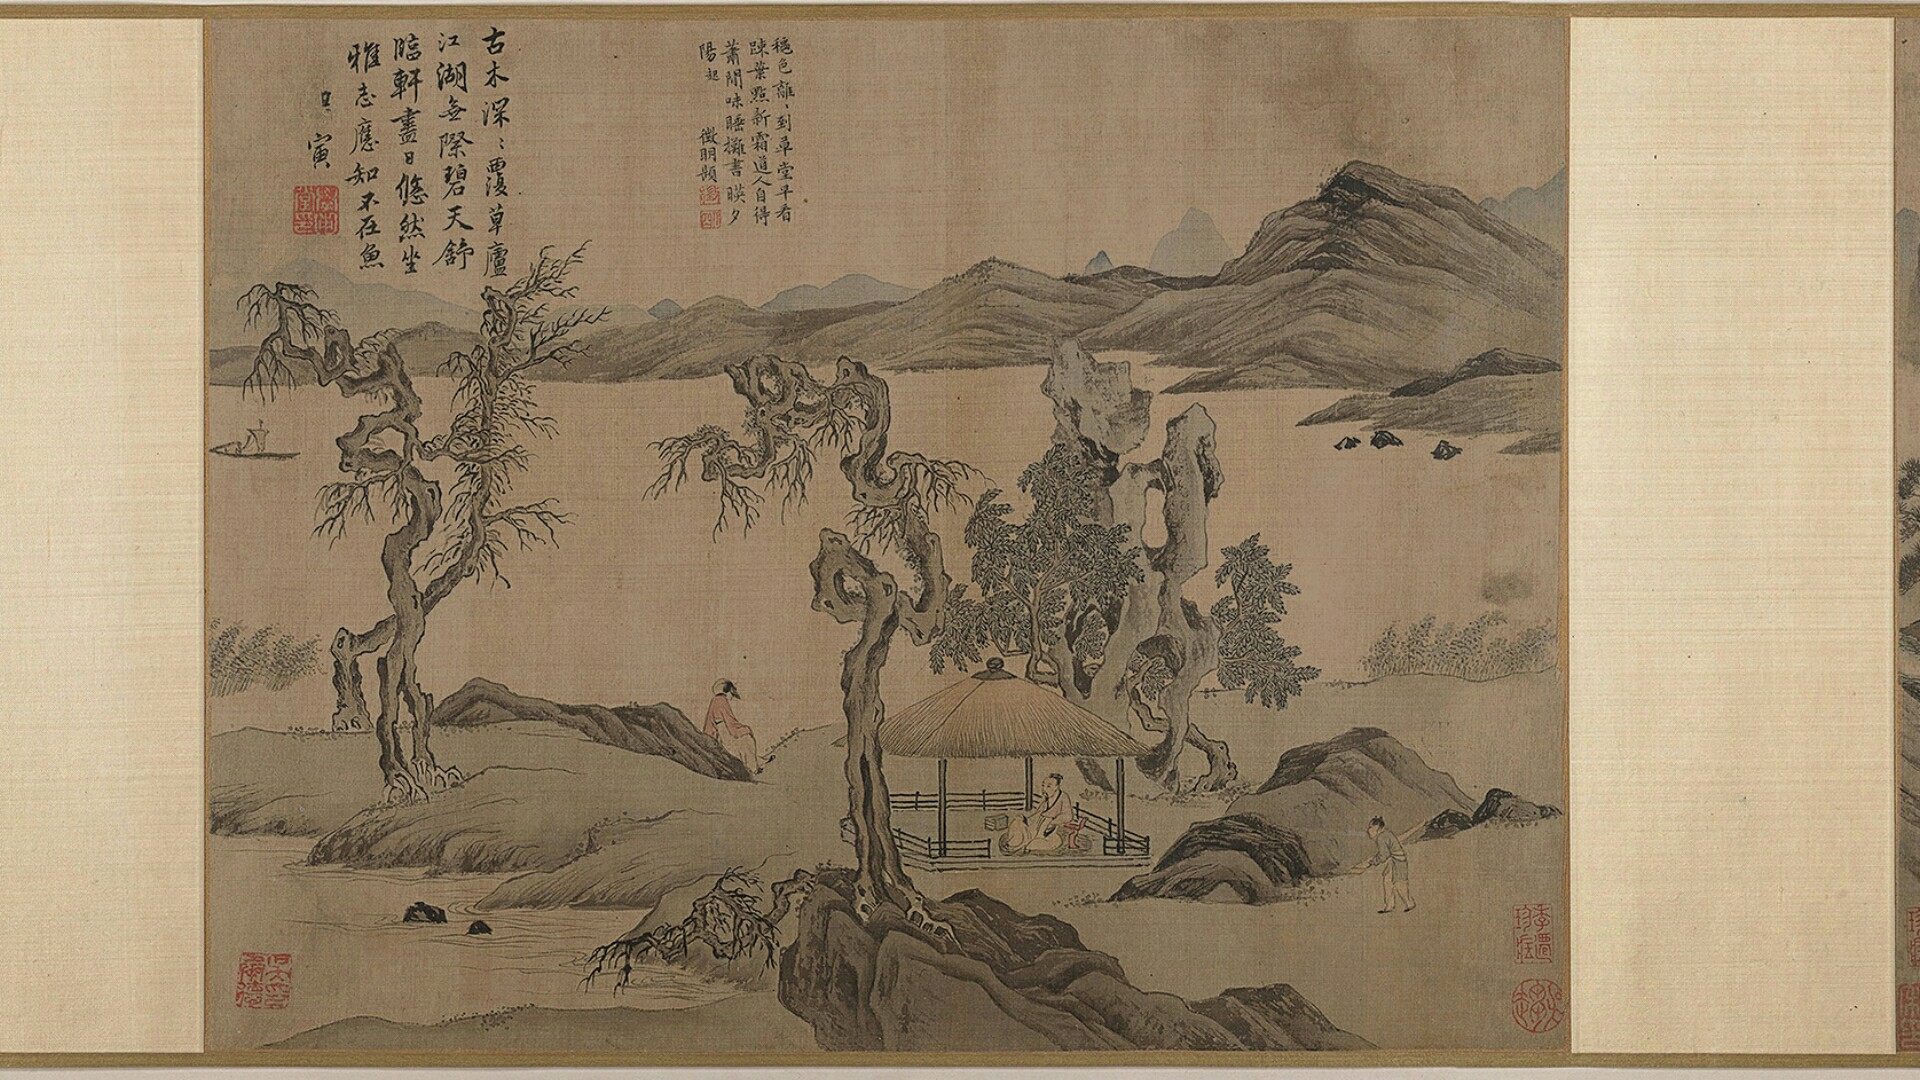 穐色離、到草堂早看
踈葉點新霜道人自得
蕭閒味睡攤書暎夕
陽起
徵明題
古木深〻覆草廬
江湖無際碧天舒
臨軒盡日悠然坐
雅志應知不在魚
唐寅